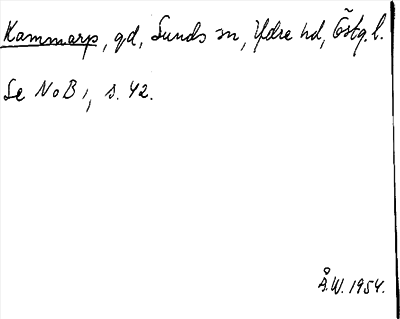 Kammarp, gd, Sunds sn, Ydre hd, Östg. l.
Se NoB 1, s. 42.
Å.W. 1954.